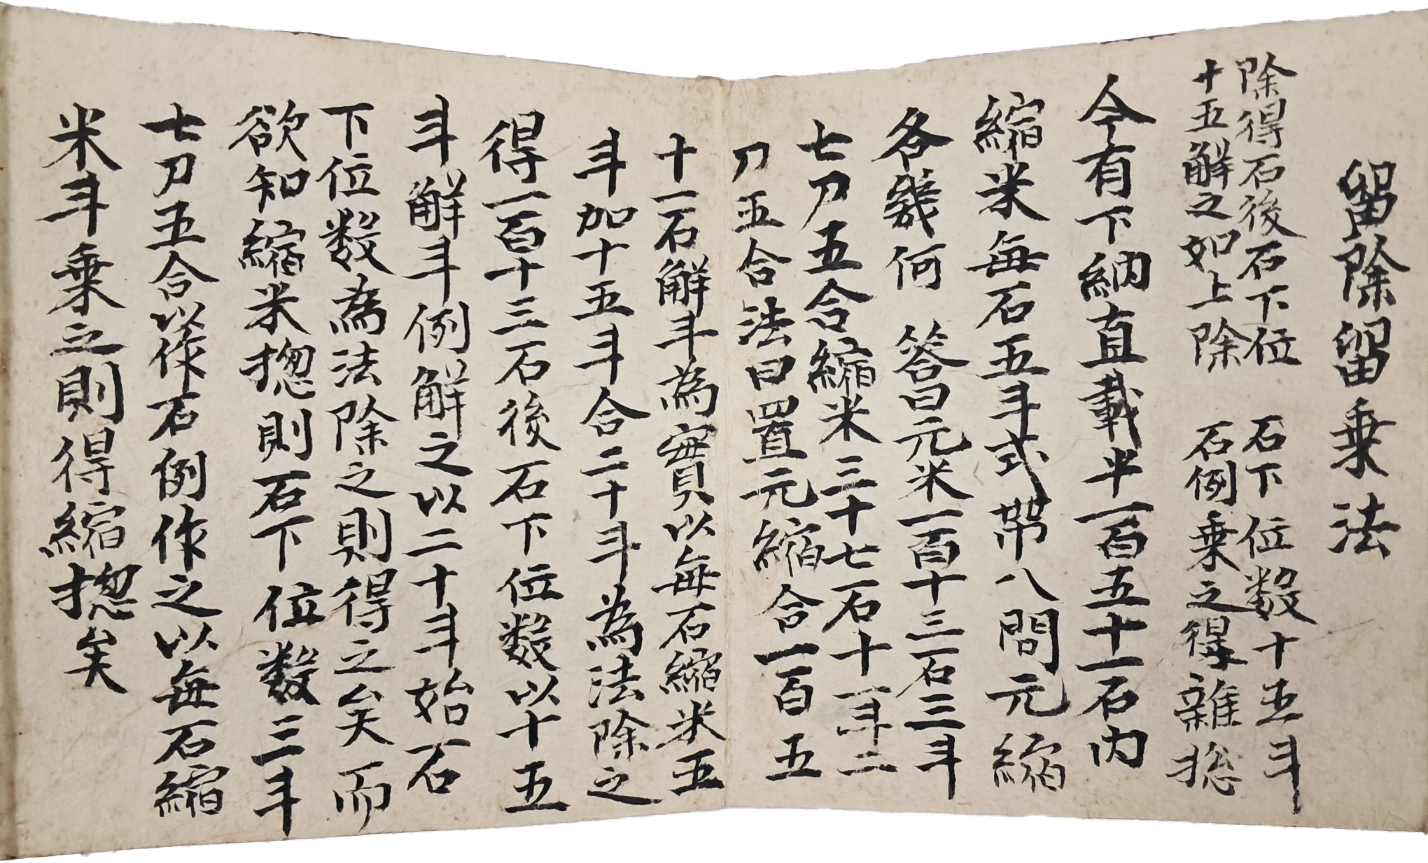 留除留乗法
除得石後石下位　石下位数十五斗
十五解之如上除　石例乗之得雜揔
今有下納直載半一百五十一石內
縮米每石五斗式帶八問元縮
各幾何　答曰元米一百十三石三斗
七刀五合縮米三十七石十一斗二
刀五合法曰置元縮合一百五
十一石解斗為實以每石縮米五
斗加十五斗合二十斗為法除之
得一百十三石後石下位数以十五
斗解斗例解之以二十斗始石
下位数為法除之則得之矣而
欲知縮米揔則石下位数三斗
七刀五合以作石例作之以每石縮
米斗乗之則得縮揔矣